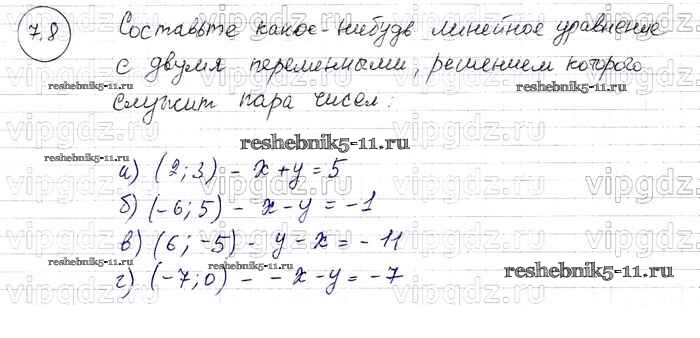 7.8 Составьте какое-нибудь линейное уравнение
с двумя переменными, решением которого
reshebnik5-11.ru
служит пара чисел:
vipgdz.ru
reshebnik5-11.ru
reshebnik5-11.ru
а) (2; 3) - x + y = 5
б) (-6; 5) - x - y = -1
в) (6; -5) - y - x = -11
reshebnik5-11.ru
reshebnik5-11.ru
г) (-7; 0) - - x - y = -7